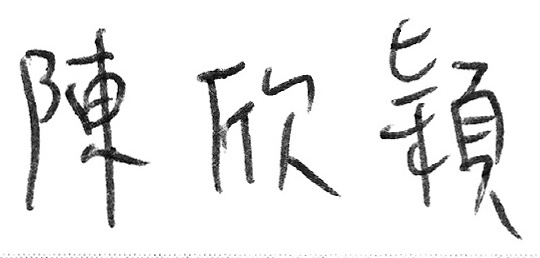 陳欣穎